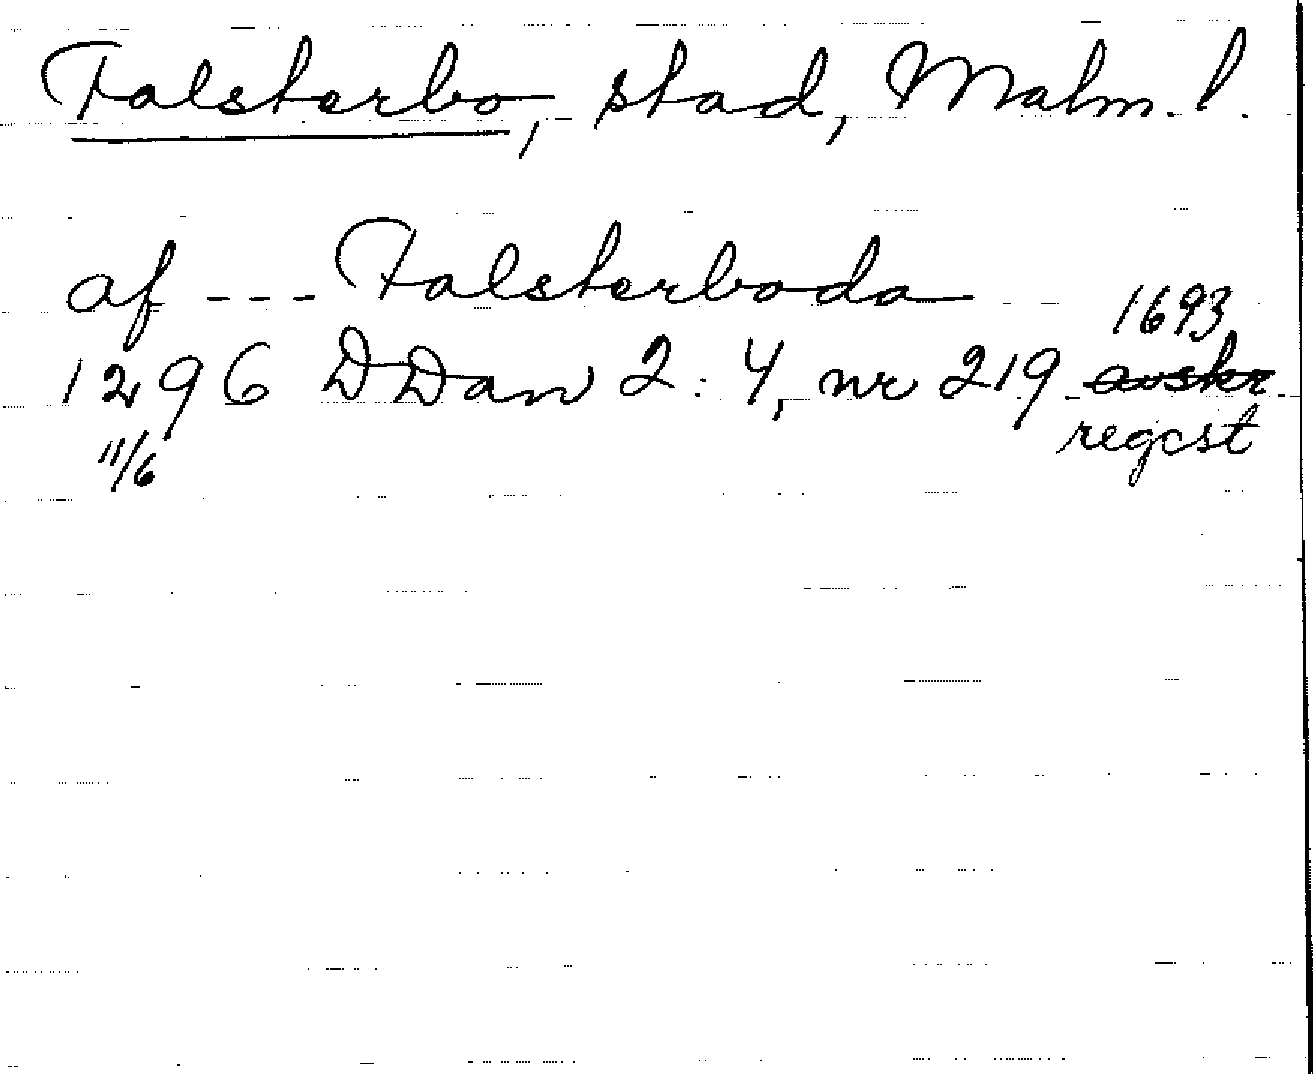 Falsterbo, stad, Malm. l.
af --- Falsterboda
1693
1296 DDan 2:4, nr 219 avskr
regest
11/6